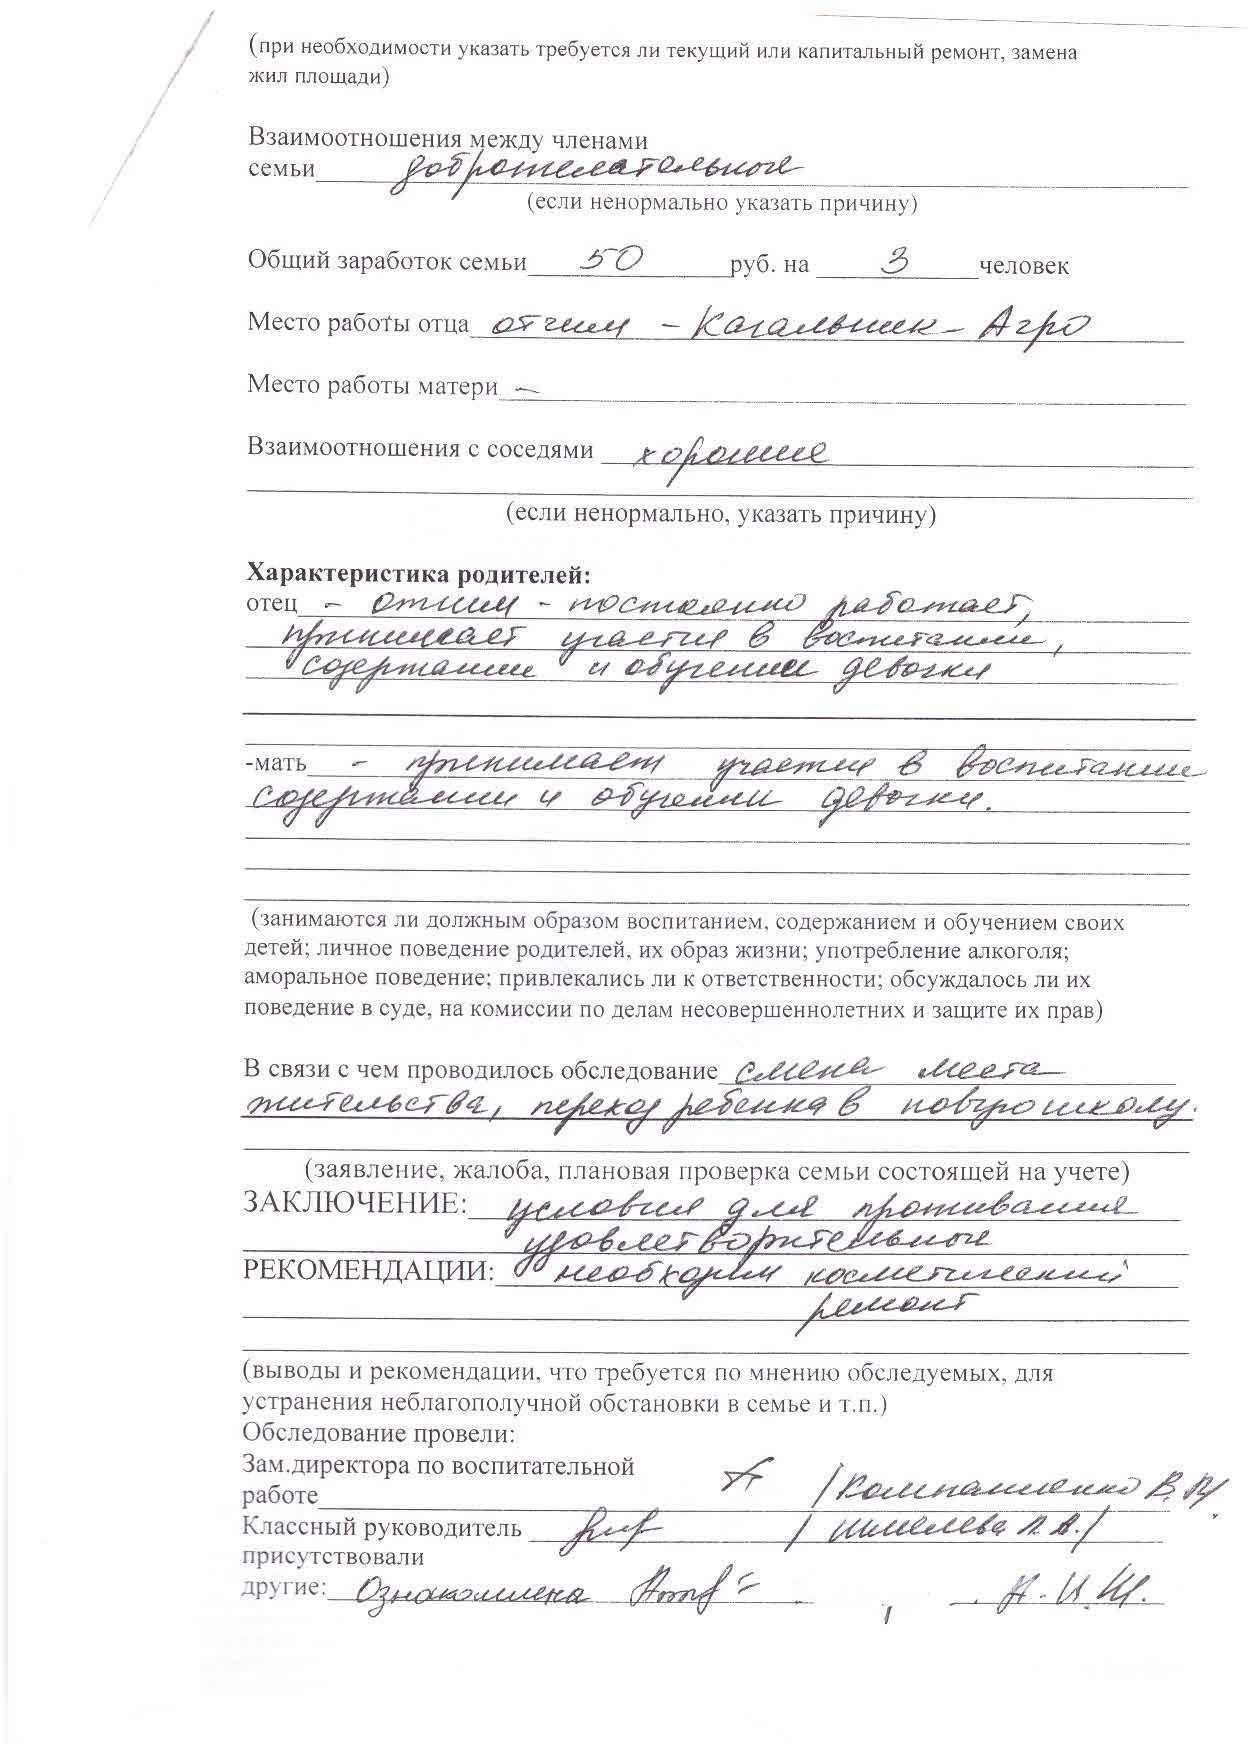 (при необходимости указать требуется ли текущий или капитальный ремонт, замена
жил площади)
Взаимоотношения между членами
семьи доброжелательные
(если ненормально указать причину)
Общий заработок семьи 50 руб. на 3 человек
Место работы отца отчим - Кагальник - Агро
Место работы матери —
Взаимоотношения с соседями хорошие
(если ненормально, указать причину)
Характеристика родителей:
отец - отчим - постоянно работает,
принимает участия в воспитании,
содержании и обучении девочки
-мать - принимает участия в воспитании
содержании и обучении девочки.
(занимаются ли должным образом воспитанием, содержанием и обучением своих
детей; личное поведение родителей, их образ жизни; употребление алкоголя;
аморальное поведение; привлекались ли к ответственности; обсуждалось ли их
поведение в суде, на комиссии по делам несовершеннолетних и защите их прав)
В связи с чем проводилось обследование смена места
жительства, переход ребенка в новую школу.
(заявление, жалоба, плановая проверка семьи состоящей на учете)
ЗАКЛЮЧЕНИЕ: условия для проживания
удовлетворительные
РЕКОМЕНДАЦИИ: необходим косметический
ремонт
(выводы и рекомендации, что требуется по мнению обследуемых, для
устранения неблагополучной обстановки в семье и т.п.)
Обследование провели:
Зам.директора по воспитательной
работе /Компаниенко В.
Классный руководитель / Шмелева Л.А./
присутствовали
другие: Ознакомлена А. И. Ш.